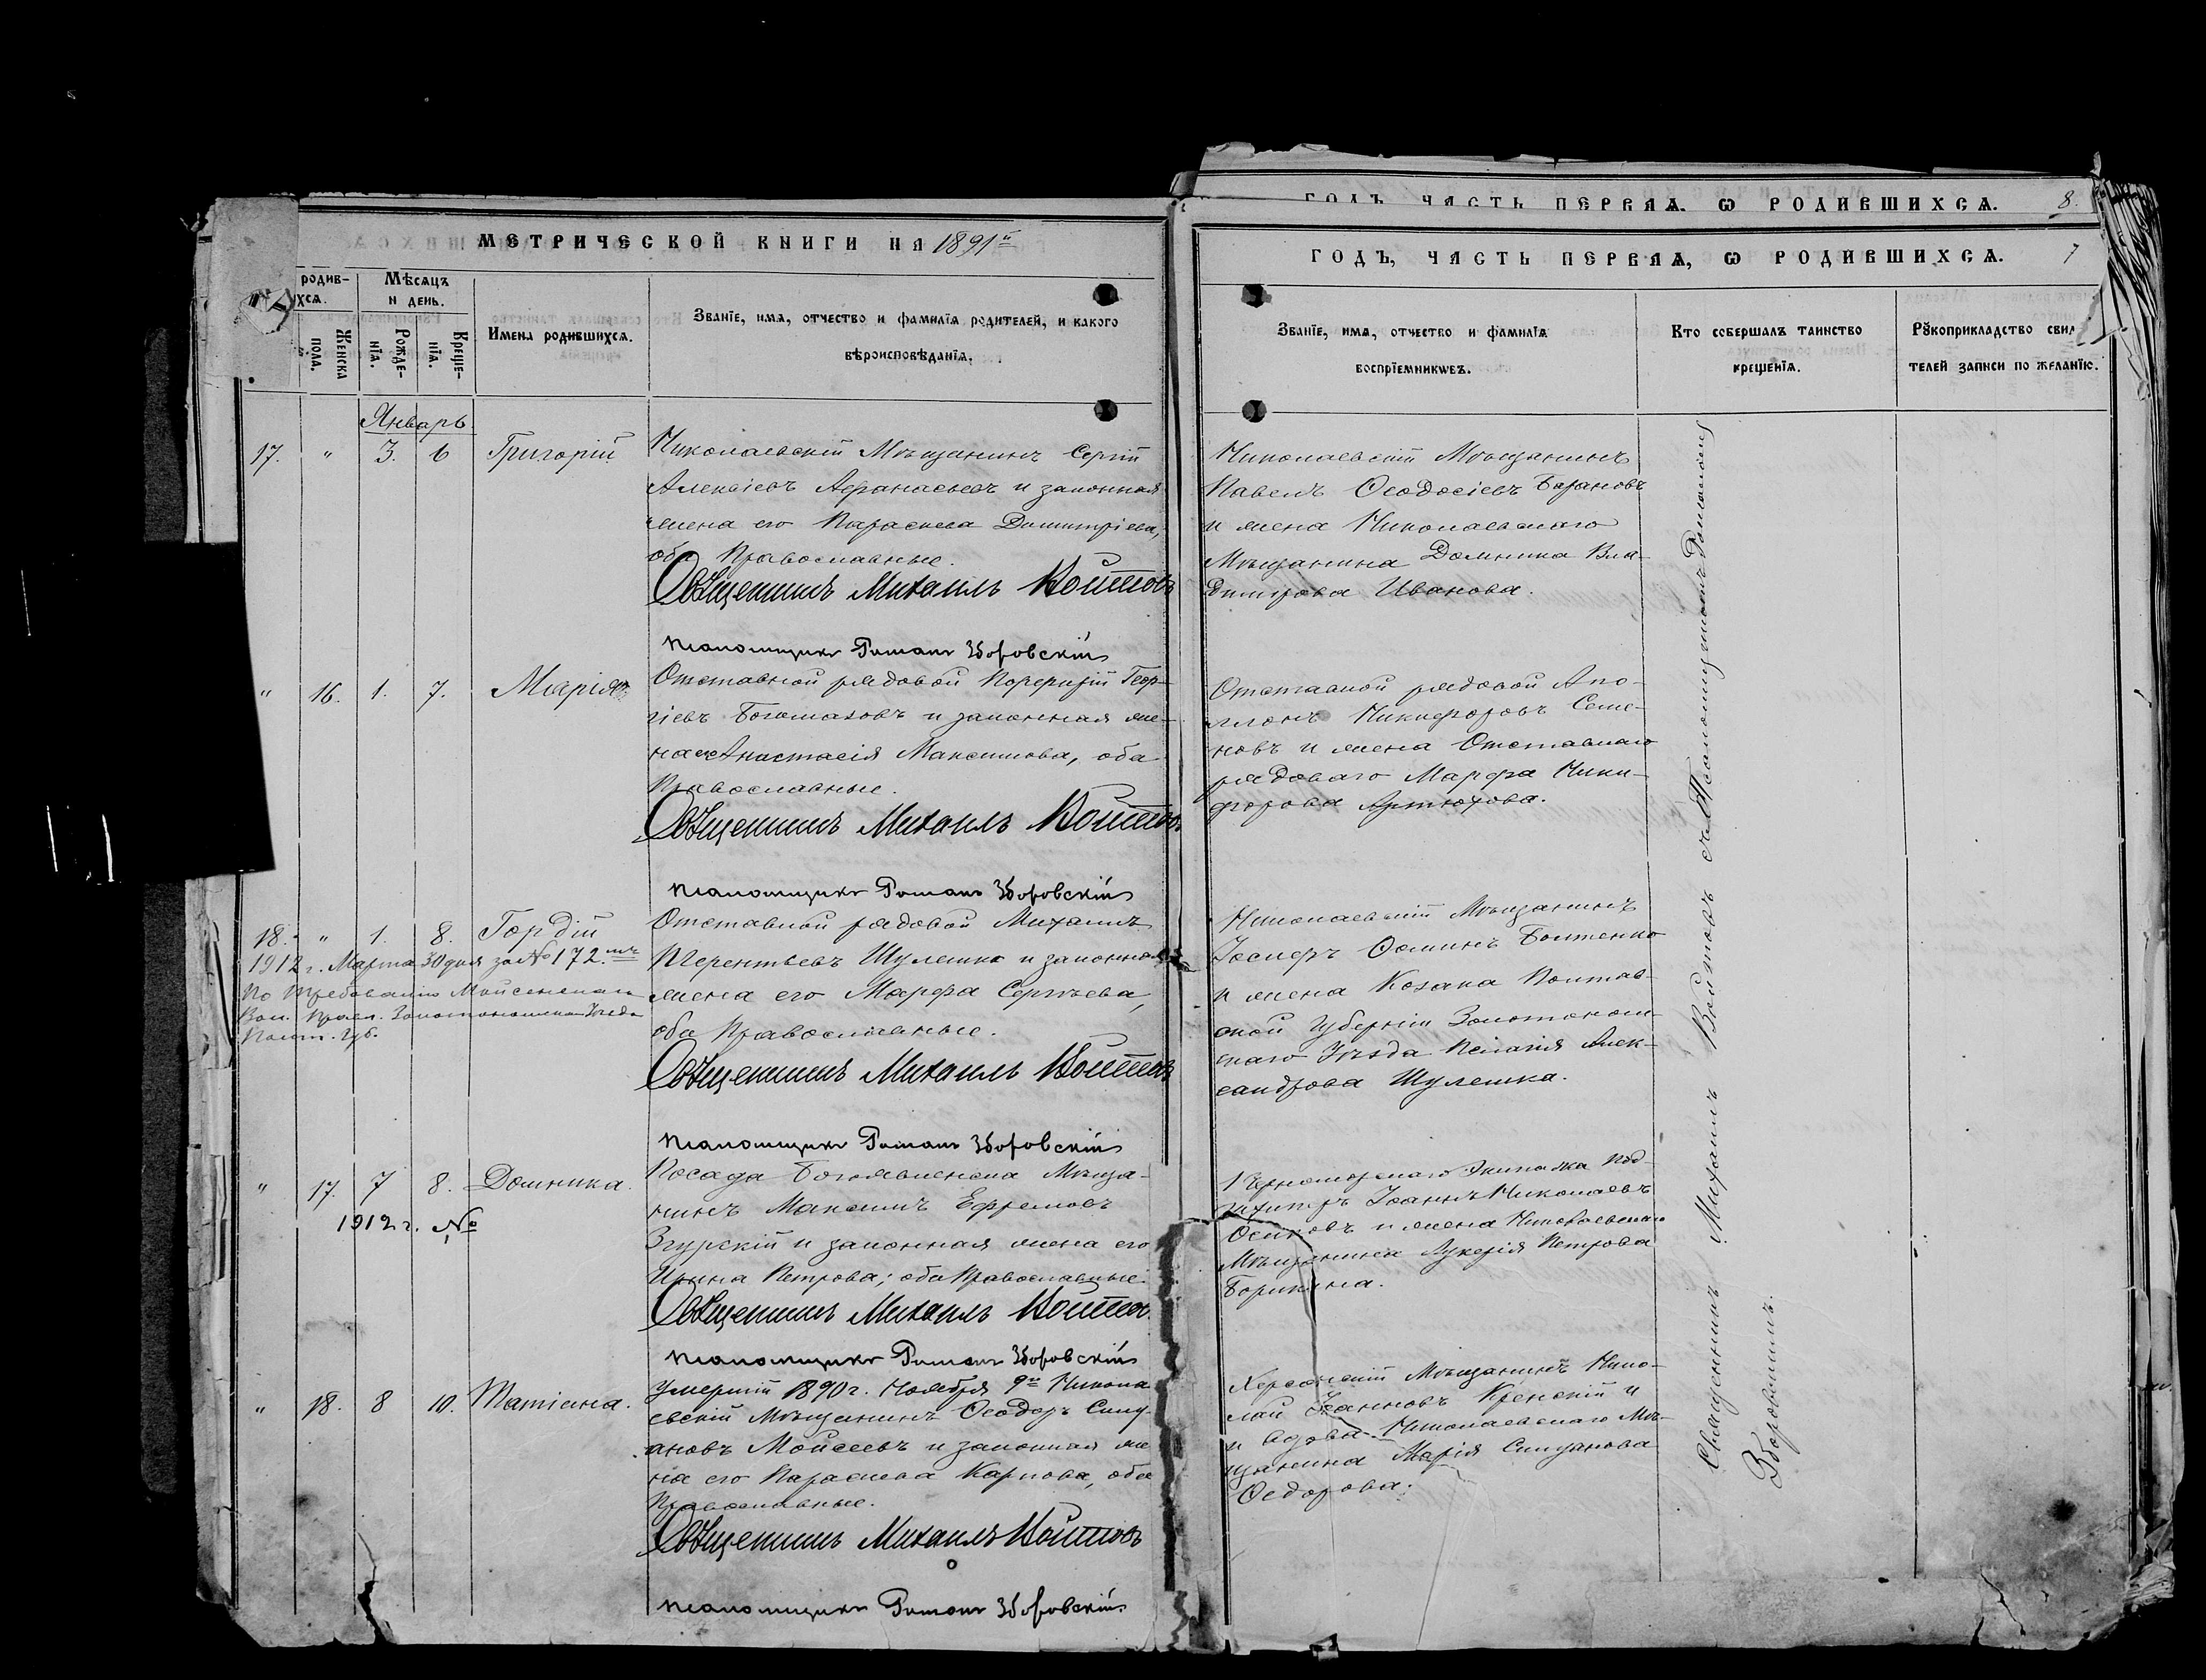 МЕТРИЧЕСКОЙ КНИГИ НА 1891й
ГОДЪ, ЧАСТЬ ПЕРВАЯ, Ѡ РОДИВШИХСѦ. 8.
ГОДЪ, ЧАСТЬ ПЕРВАЯ, Ѡ РОДИВШИХСѦ. 7
родив-
хсѧ.
Женска
пола.
Мѣсяцъ
и день.
Рожде-
нїѧ.
Креще-
нїѧ.
Имена родившихсѧ.
Званїе, имѧ, отчество и фамилїѧ родителей, и какого
вѣроисповѣданїѧ.
Званїе, имѧ, отчество и фамилїѧ
воспрїемникѡвъ.
Кто совершалъ таинство
крещенїѧ.
Рꙋкоприкладство свид
телей записи по желанїю.
Январь
17. " 3. 6 Григорій
Николаевскій Мѣщанинъ Сергій
Алексіевъ Аѳанасьевъ и законная
жена его Параскева Димитріева,
оба Православные.
Священникъ Михаилъ Войтовъ
Псаломщикъ Романъ Зборовскій
Николаевскій Мѣщанинъ
Павелъ Ѳеодосіевъ Барановъ
и жена Николаевскаго
Мѣщанина Домника Вла-
димірова Иванова.
" 16. 1. 7. Марія
Отставной рядовой Порфирій Геор-
гіевъ Богомазовъ и законная же-
на его Анастасія Максимова, оба
Православные.
Священникъ Михаилъ Войтовъ
Псаломщикъ Романъ Зборовскій
Отставной рядовой Апо-
ллонъ Никифоровъ Семе-
новъ и жена Отставнаго
рядоваго Марфа Ники-
форова Артюхова.
18. " 1. 8. Гордій
1912 г. Марта 30 дня за № 172.мъ
По требованію Мойсенскаго
Вол. Правл. Золотоношскаго Уѣзда
Полт. Губ.
Отставной рядовой Михаилъ
Терентьевъ Шулешко и законная
жена его Марфа Сергѣева,
оба Православные.
Священникъ Михаилъ Войтовъ
Псаломщикъ Романъ Зборовскій
Николаевскій Мѣщанинъ
Іосифъ Ѳоминъ Болтенко
и жена Козака Полтав-
ской Губерніи Золотонош-
скаго Уѣзда Пелагія Алек-
сандрова Шулешка.
" 17. 7 8. Домника.
1912 г. №
Посада Богоявленска Мѣща-
нинъ Максимъ Ефремовъ
Згурскій и законная жена его
Ирина Петрова; оба Православные.
Священникъ Михаилъ Войтовъ
Псаломщикъ Романъ Зборовскій
Черноморскаго Экипажа Под-
Іоаннъ Николаевъ
Осиповъ и жена Николаевскаго
Мѣщанина Лукерія Петрова
" 18. 8 10. Татіана.
Умершій 1890 г. Ноября 9го Никола
евскій Мѣщанинъ Ѳеодоръ Симу-
ановъ Мойсеевъ и законная же
на его Параскева Карпова, оба
Православные.
Священникъ Михаилъ Войтовъ
Псаломщикъ Романъ Зборовскій
Херсонскій Мѣщанинъ Нико-
лай Іоанновъ и
и вдова Николаевскаго Мѣ-
щанина Марія
Ѳедорова.
Священникъ Михаилъ Войтовъ съ Псаломщикомъ Романомъ
Зборовскимъ.